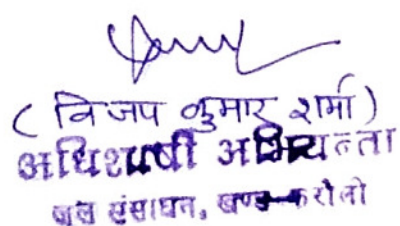 ( विजय कुमार शर्मा )
अधिशाषी अभियन्ता
जल संसाधन, खण्ड-करौली